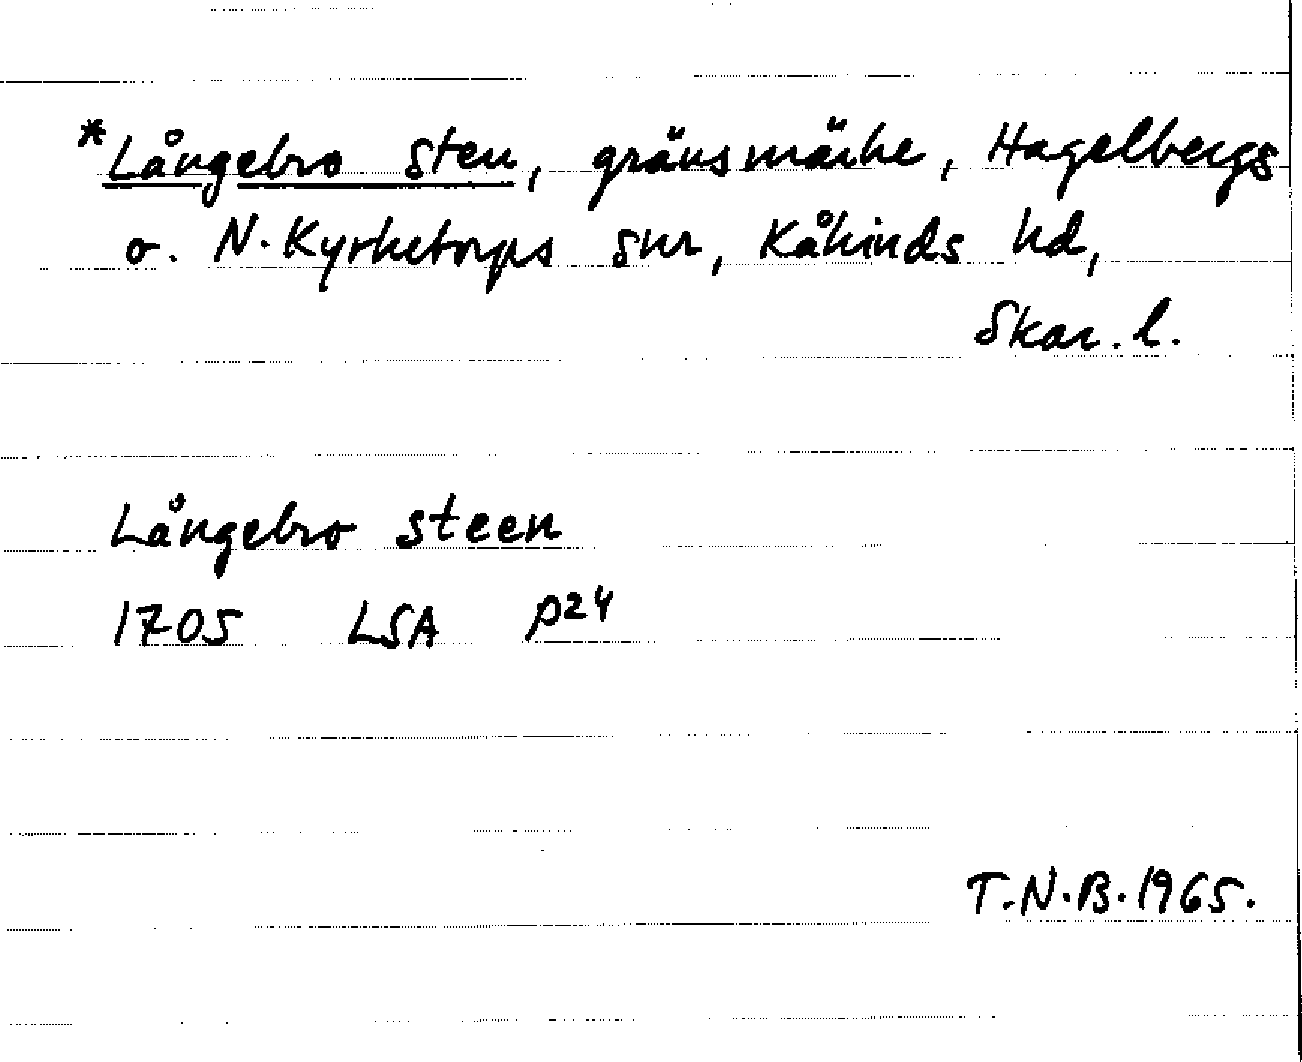 *Långebro sten, gränsmärke, Hagelbergs
o. N. Kyrketorps snr, Kåkinds hd,
Skar. l.
Långebro steen
1705 LSA P24
T.N.B. 1965.